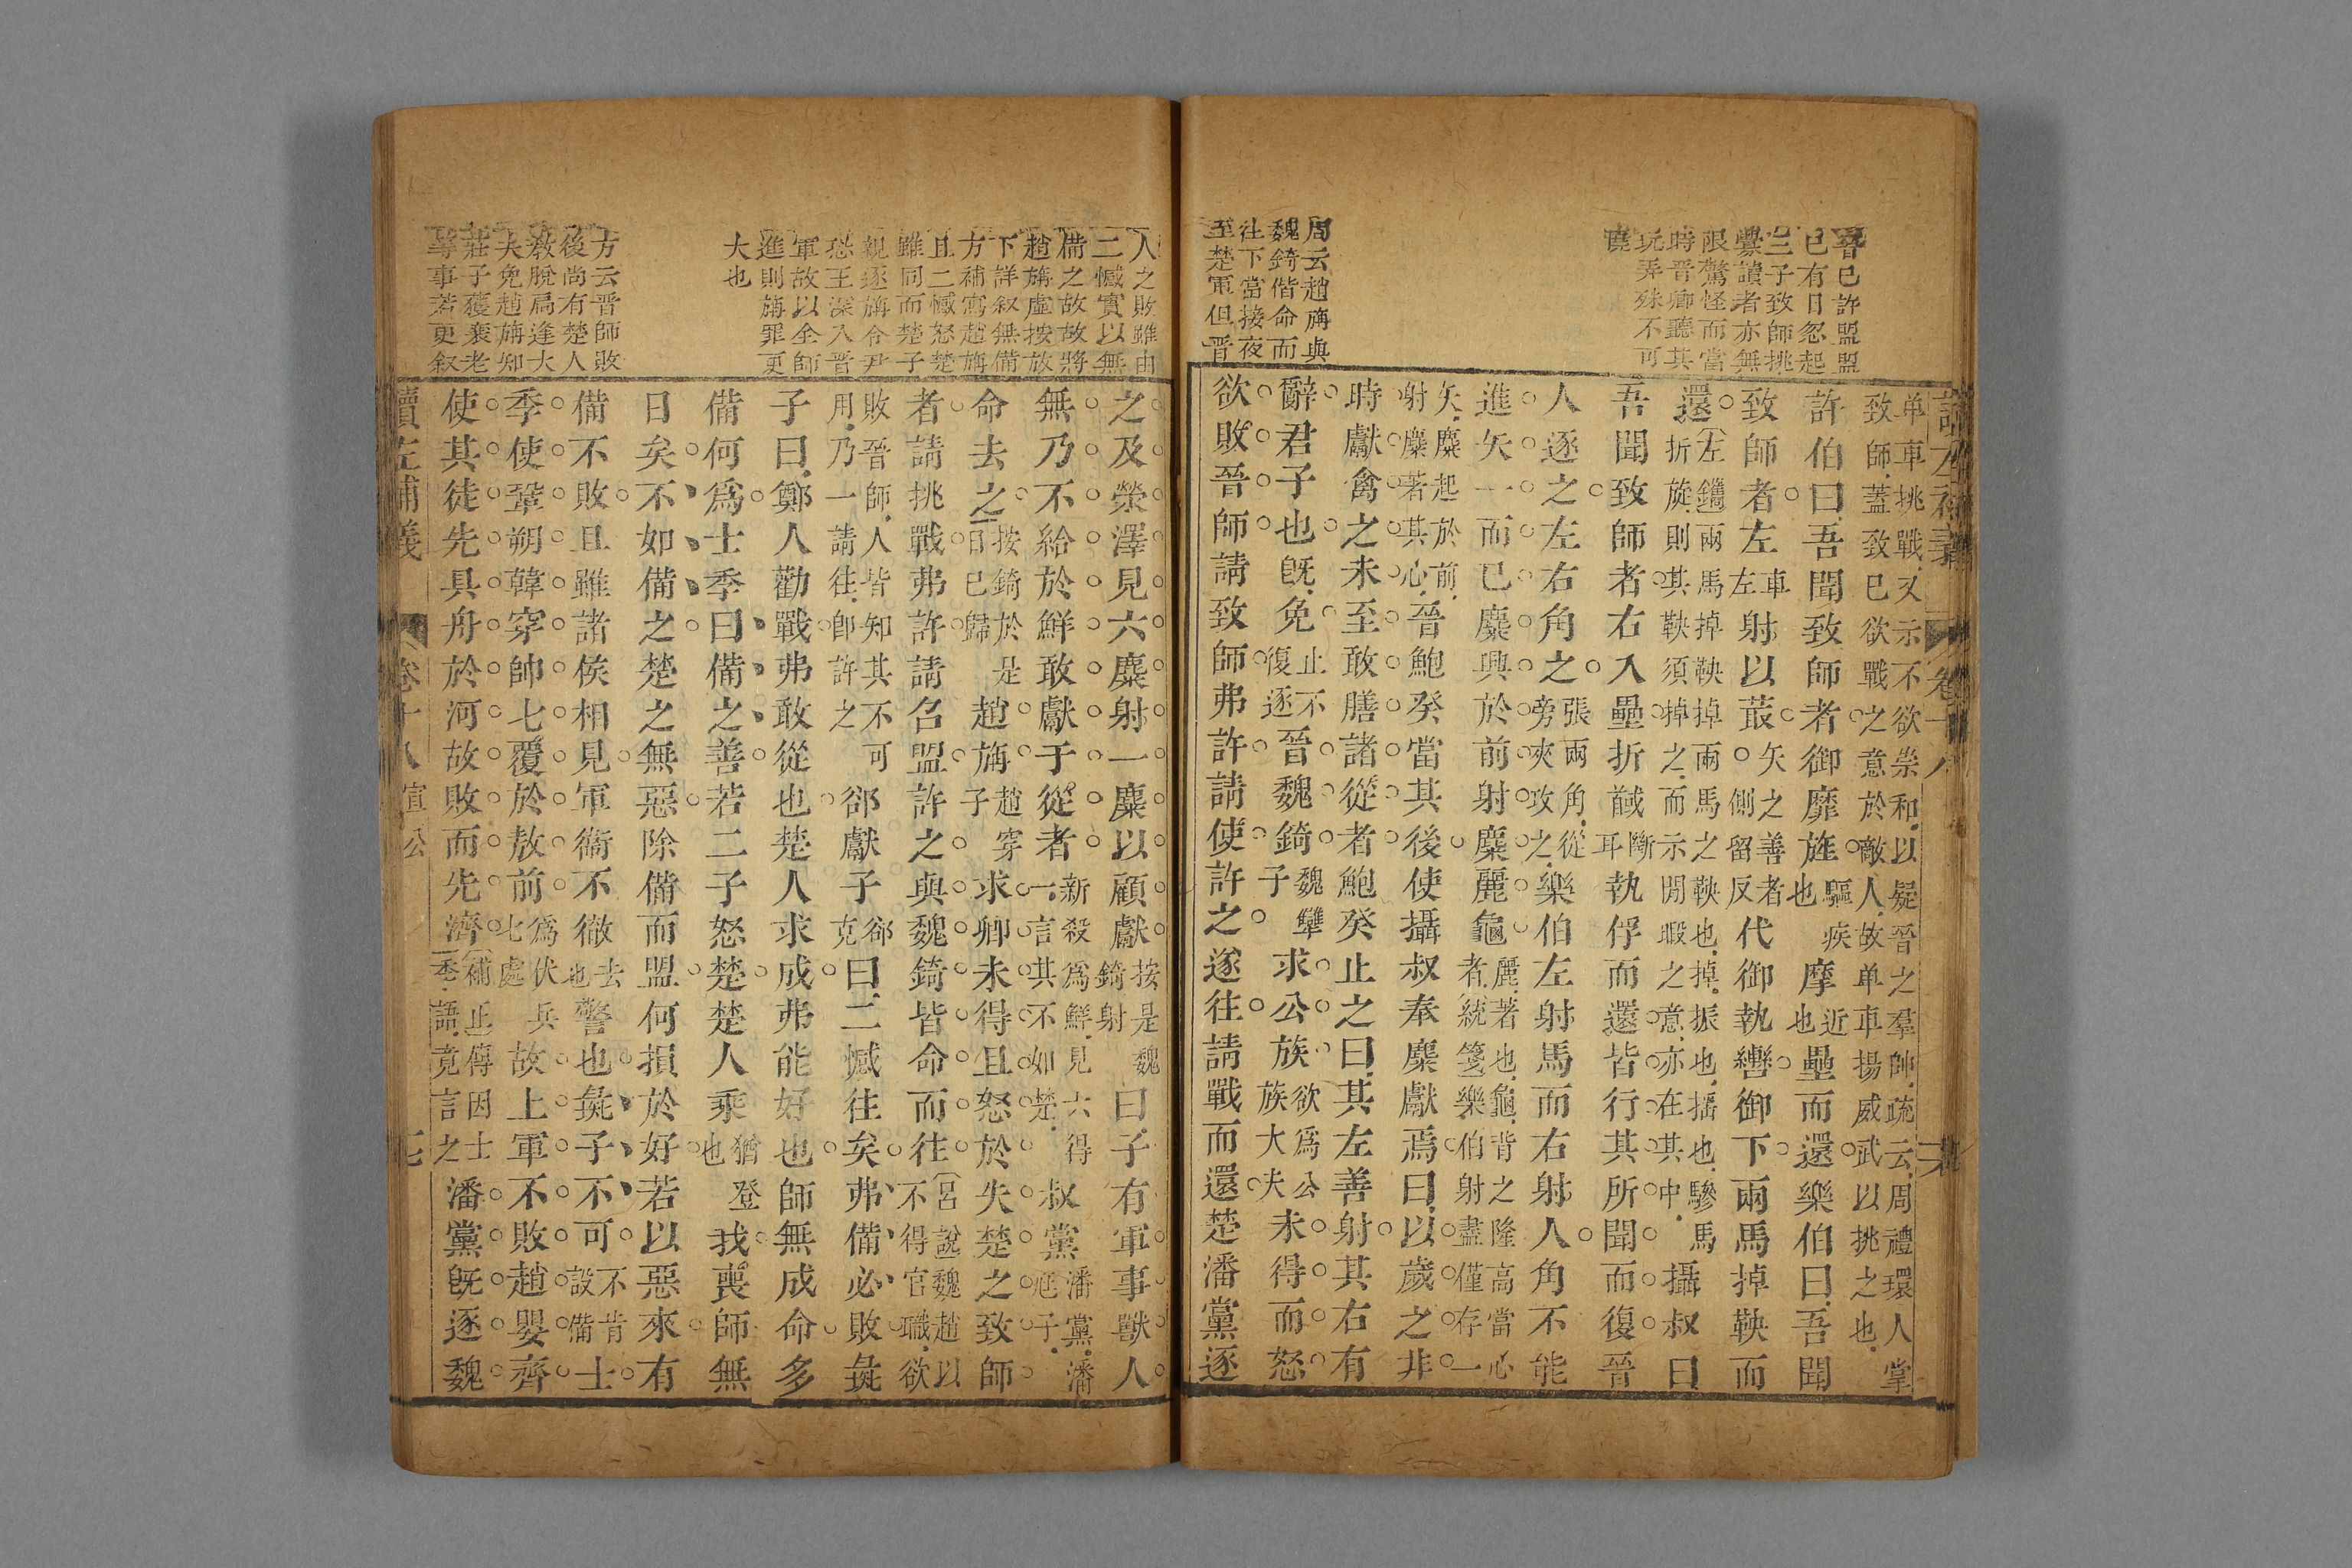 晉已許盟盟
已有日忽起
三子致師挑
釁讀者亦無
限驚怪而當
時晉卿聽其
玩弄殊不可
曉
周云趙旃與
魏錡偕命而
往下當接夜
至楚軍但晉
讀左補義　卷十八
单車挑戰又示不欲崇和以疑晉之羣帥疏云周禮環人掌
致師蓋致已欲戰之意於敵人故单車揚威武以挑之也
許伯曰吾聞致師者御靡旌驅疾也摩近也壘而還樂伯曰吾聞
致師者左車左射以菆矢之善者側留反代御執轡御下兩馬掉鞅而
還左鐫兩馬掉鞅掉兩馬之鞅也掉振也揺也驂馬折旋則其鞅須掉之而示閒暇之意亦在其中攝叔曰
吾聞致師者右入壘折馘斷耳執俘而還皆行其所聞而復晉
人逐之左右角之張兩角從旁夾攻之樂伯左射馬而右射人角不能
進矢一而已麋興於前射麋麗龜麗著也龜背之隆高當心者統箋樂伯射盡僅存一
矢麋起於前射麋著其心晉鮑癸當其後使攝叔奉麋獻焉曰以歲之非
時獻禽之未至敢膳諸從者鮑癸止之曰其左善射其右有
辭君子也旣免止不復逐晉魏錡魏犨子求公族欲爲公族大夫未得而怒
欲敗晉師請致師弗許請使許之遂往請戰而還楚潘黨逐
人之敗雖由
二憾實以無
備之故故將
趙旃虛按放
下詳叙無備
方補寫趙旃
且二憾怒楚
雖同而楚子
親逐旃令尹
恐王深入晉
軍故以全師
進則旃罪更
大也
方云晉師敗
後尚有楚人
敎脫局逢大
夫免趙旃知
莊子獲襄老
等事若更叙
之及滎澤見六麋射一麋以顧獻按是魏錡射曰子有軍事獸人
無乃不給於鮮敢獻于從者新殺爲鮮見六得一言其不如楚叔黨潘黨潘尫子
命去之按錡於是日已歸趙旃趙穿子求卿未得且怒於失楚之致師
者請挑戰弗許請召盟許之與魏錡皆命而往呂說魏趙以不得官職欲
敗晉師人皆知其不可用乃一請往卽許之郤獻子郤克曰二憾往矣弗備必敗彘
子曰鄭人勸戰弗敢從也楚人求成弗能好也師無成命多
備何爲士季曰備之善若二子怒楚楚人乘猶登也我喪師無
日矣不如備之楚之無惡除備而盟何損於好若以惡來有
備不敗且雖諸侯相見軍衞不徹去也警也彘子不可不肯設備士
季使鞏朔韓穿帥七覆於敖前爲伏兵七處故上軍不敗趙嬰齊
使其徒先具舟於河故敗而先濟補正傳因士季語竟言之潘黨旣逐魏
讀左補義　卷十八　宣公